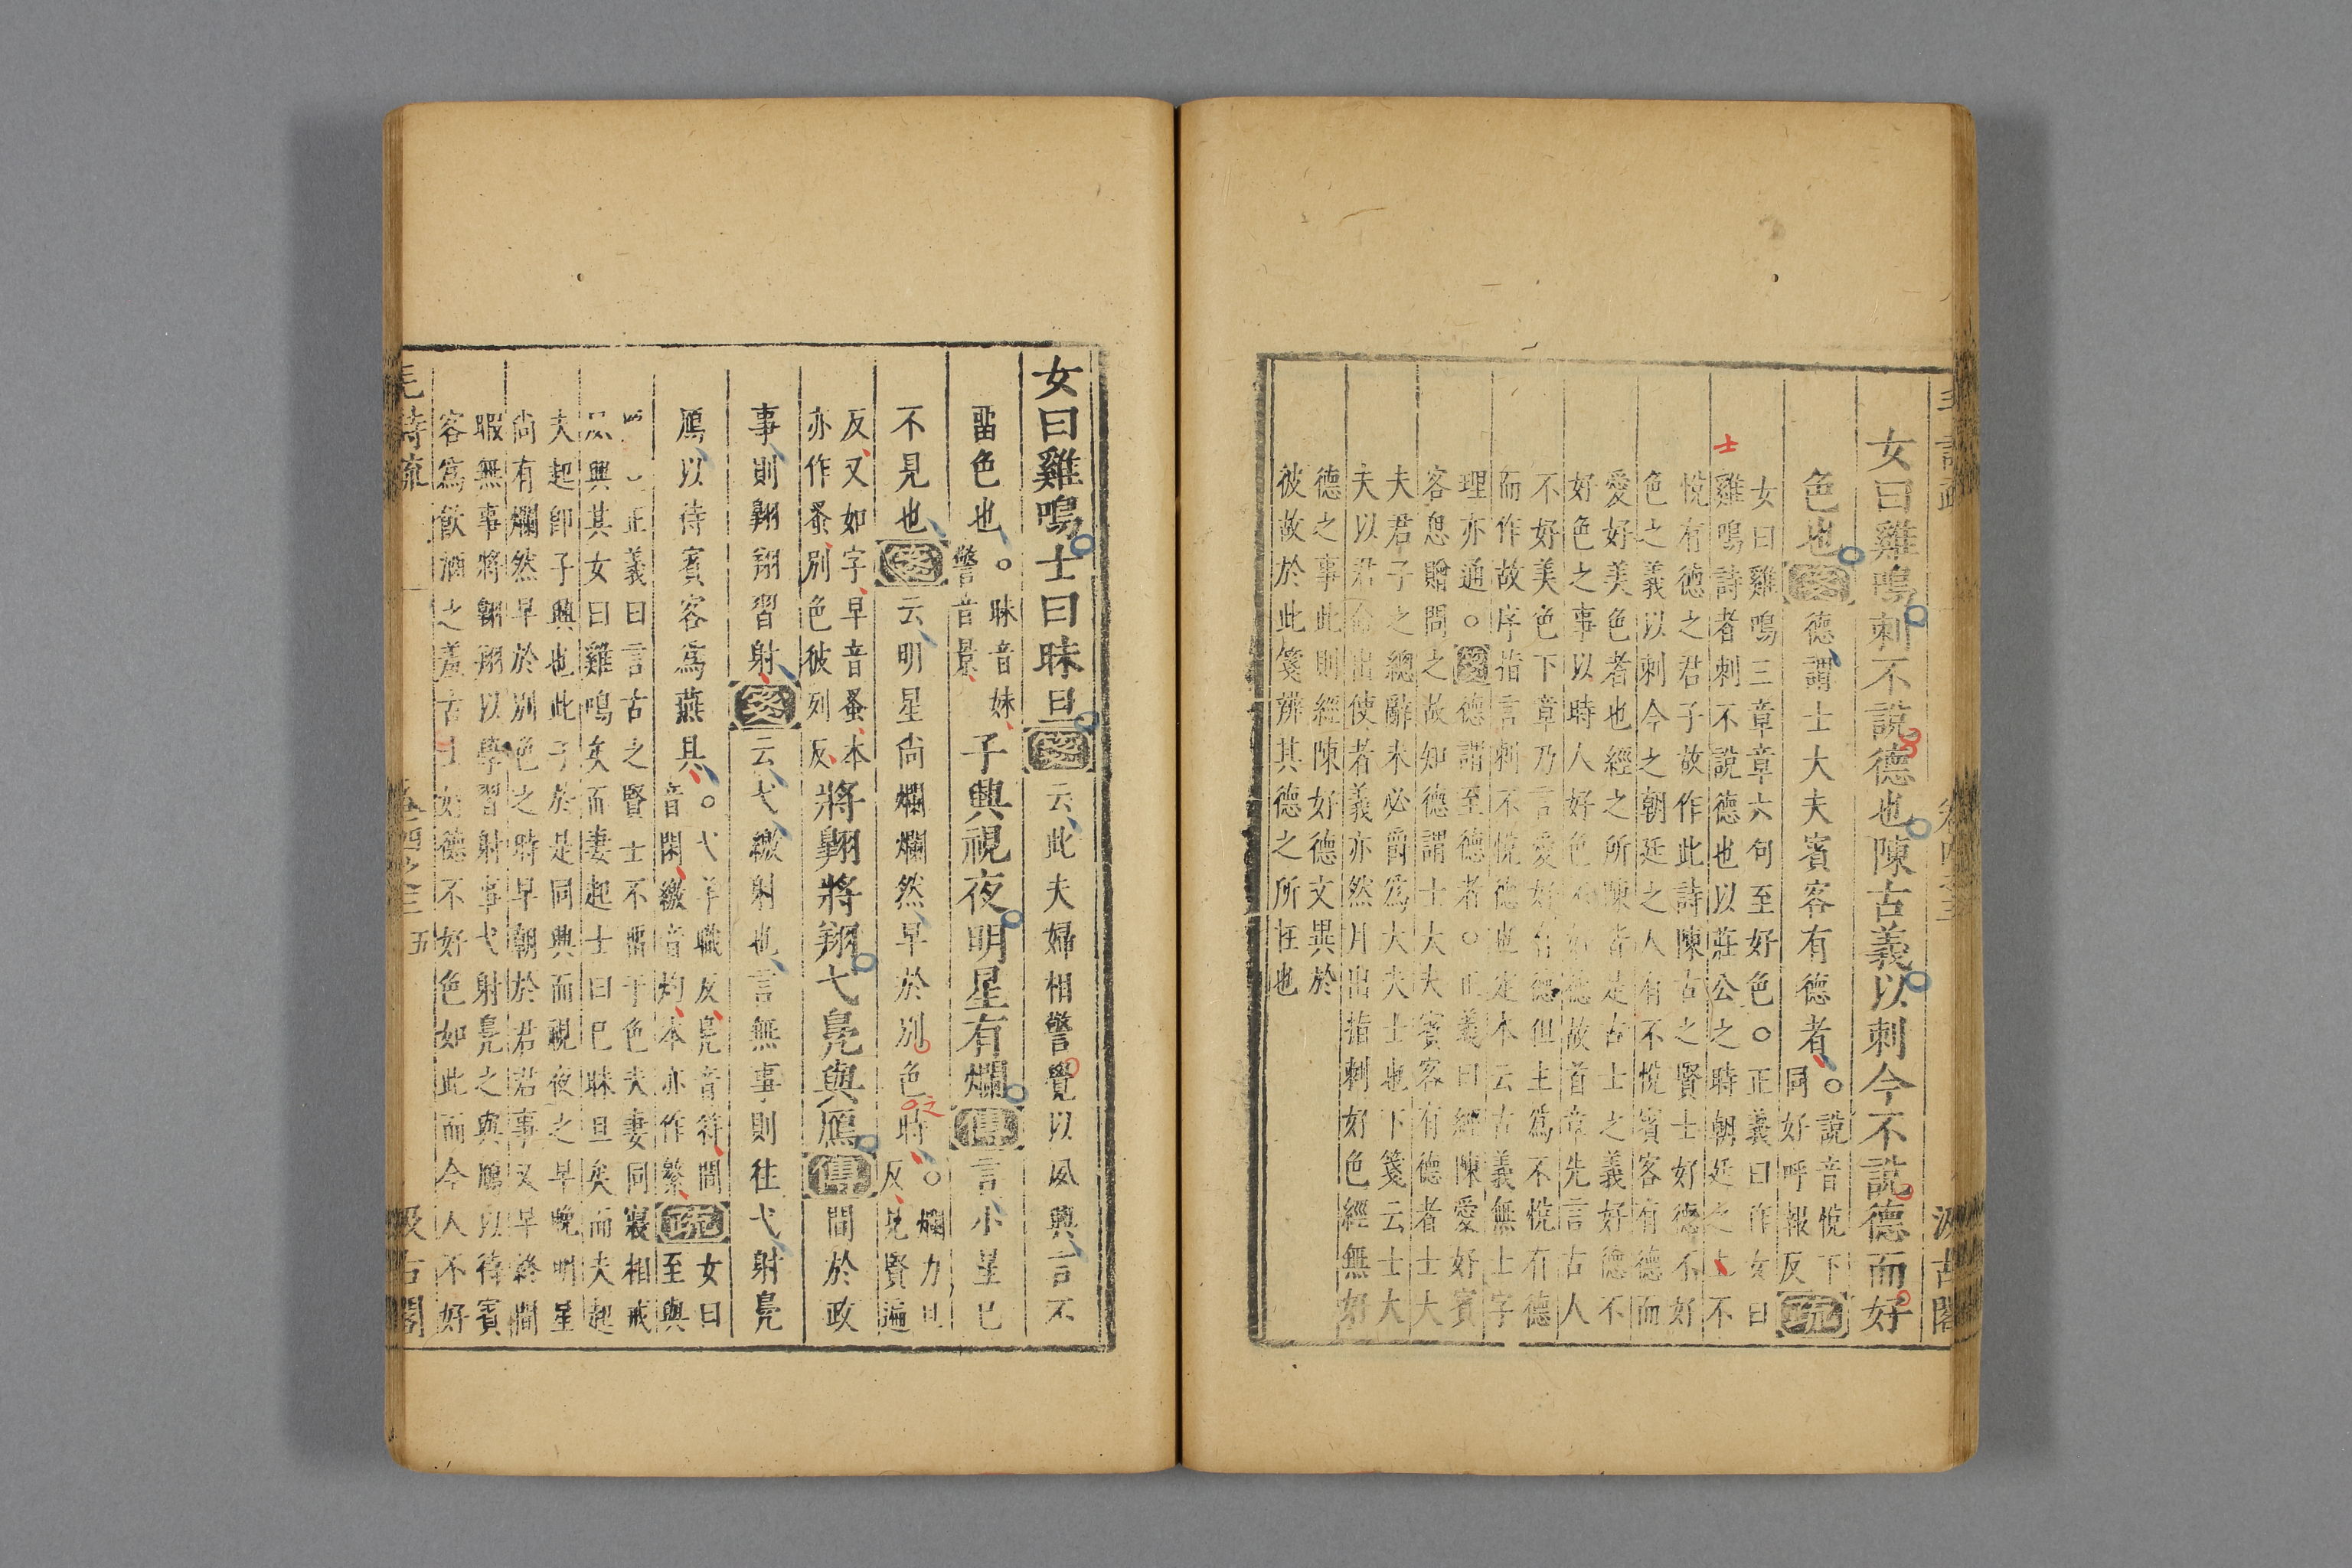 女曰雞鳴刺不說德也陳古義以刺今不說德而好
色也箋德謂士大夫賓客有德者○說音悅下
同好呼報反疏
女曰雞鳴三章章六句至好色○正義曰作女曰
雞鳴詩者刺不說德也以莊公之時朝廷之士不
士
悅有德之君子故作此詩陳古之賢士好德不好
色之義以刺今之朝廷之人有不悅賓客有德而
愛好美色者也經之所陳皆是古士之義好德不
好色之事以時人好色不好德故首章先言古人
不好美色下章乃言愛好有德但主爲不悅有德
而作故序指言刺不悅德也定本云古義無士字
理亦通○箋德謂至德者○正義曰經陳愛好賓
客思贈問之故知德謂士大夫賓客有德者士大
夫君子之總辭未必爵爲大夫士也下箋云士大
夫以君命出使者義亦然月出指刺好色經無好
德之事此則經陳好德文異於
彼故於此箋辨其德之所在也
女曰雞鳴士曰昧旦箋云此夫婦相警覺以夙興言不
畱色也○昧音妹
警音景子興視夜明星有爛傳言小星已
不見也箋云明星尚爛爛然早於別色時○爛力旦
之
反見賢遍
反又如字早音蚤本
亦作蚤別色彼列反將翺將翔弋鳧與鴈傳閒於政
事則翺翔習射箋云弋繳射也言無事則往弋射鳧
鴈以待賓客爲燕具○弋羊職反鳧音符閒
音閑繳音灼本亦作繁疏女曰
至與
正義曰言古之賢士不畱于色夫妻同寢相戒
夙興其女曰雞鳴矣而妻起士曰已昧旦矣而夫起
夫起卽子興也此子於是同興而視夜之早晚明星
尚有爛然早於別色之時早朝於君君事又早終閒
暇無事將翺翔以學習射事弋射鳧之與鴈以待賓
客爲飲酒之羞古士好德不好色如此而今人不好
毛詩疏
卷四之三
五
汲古閣